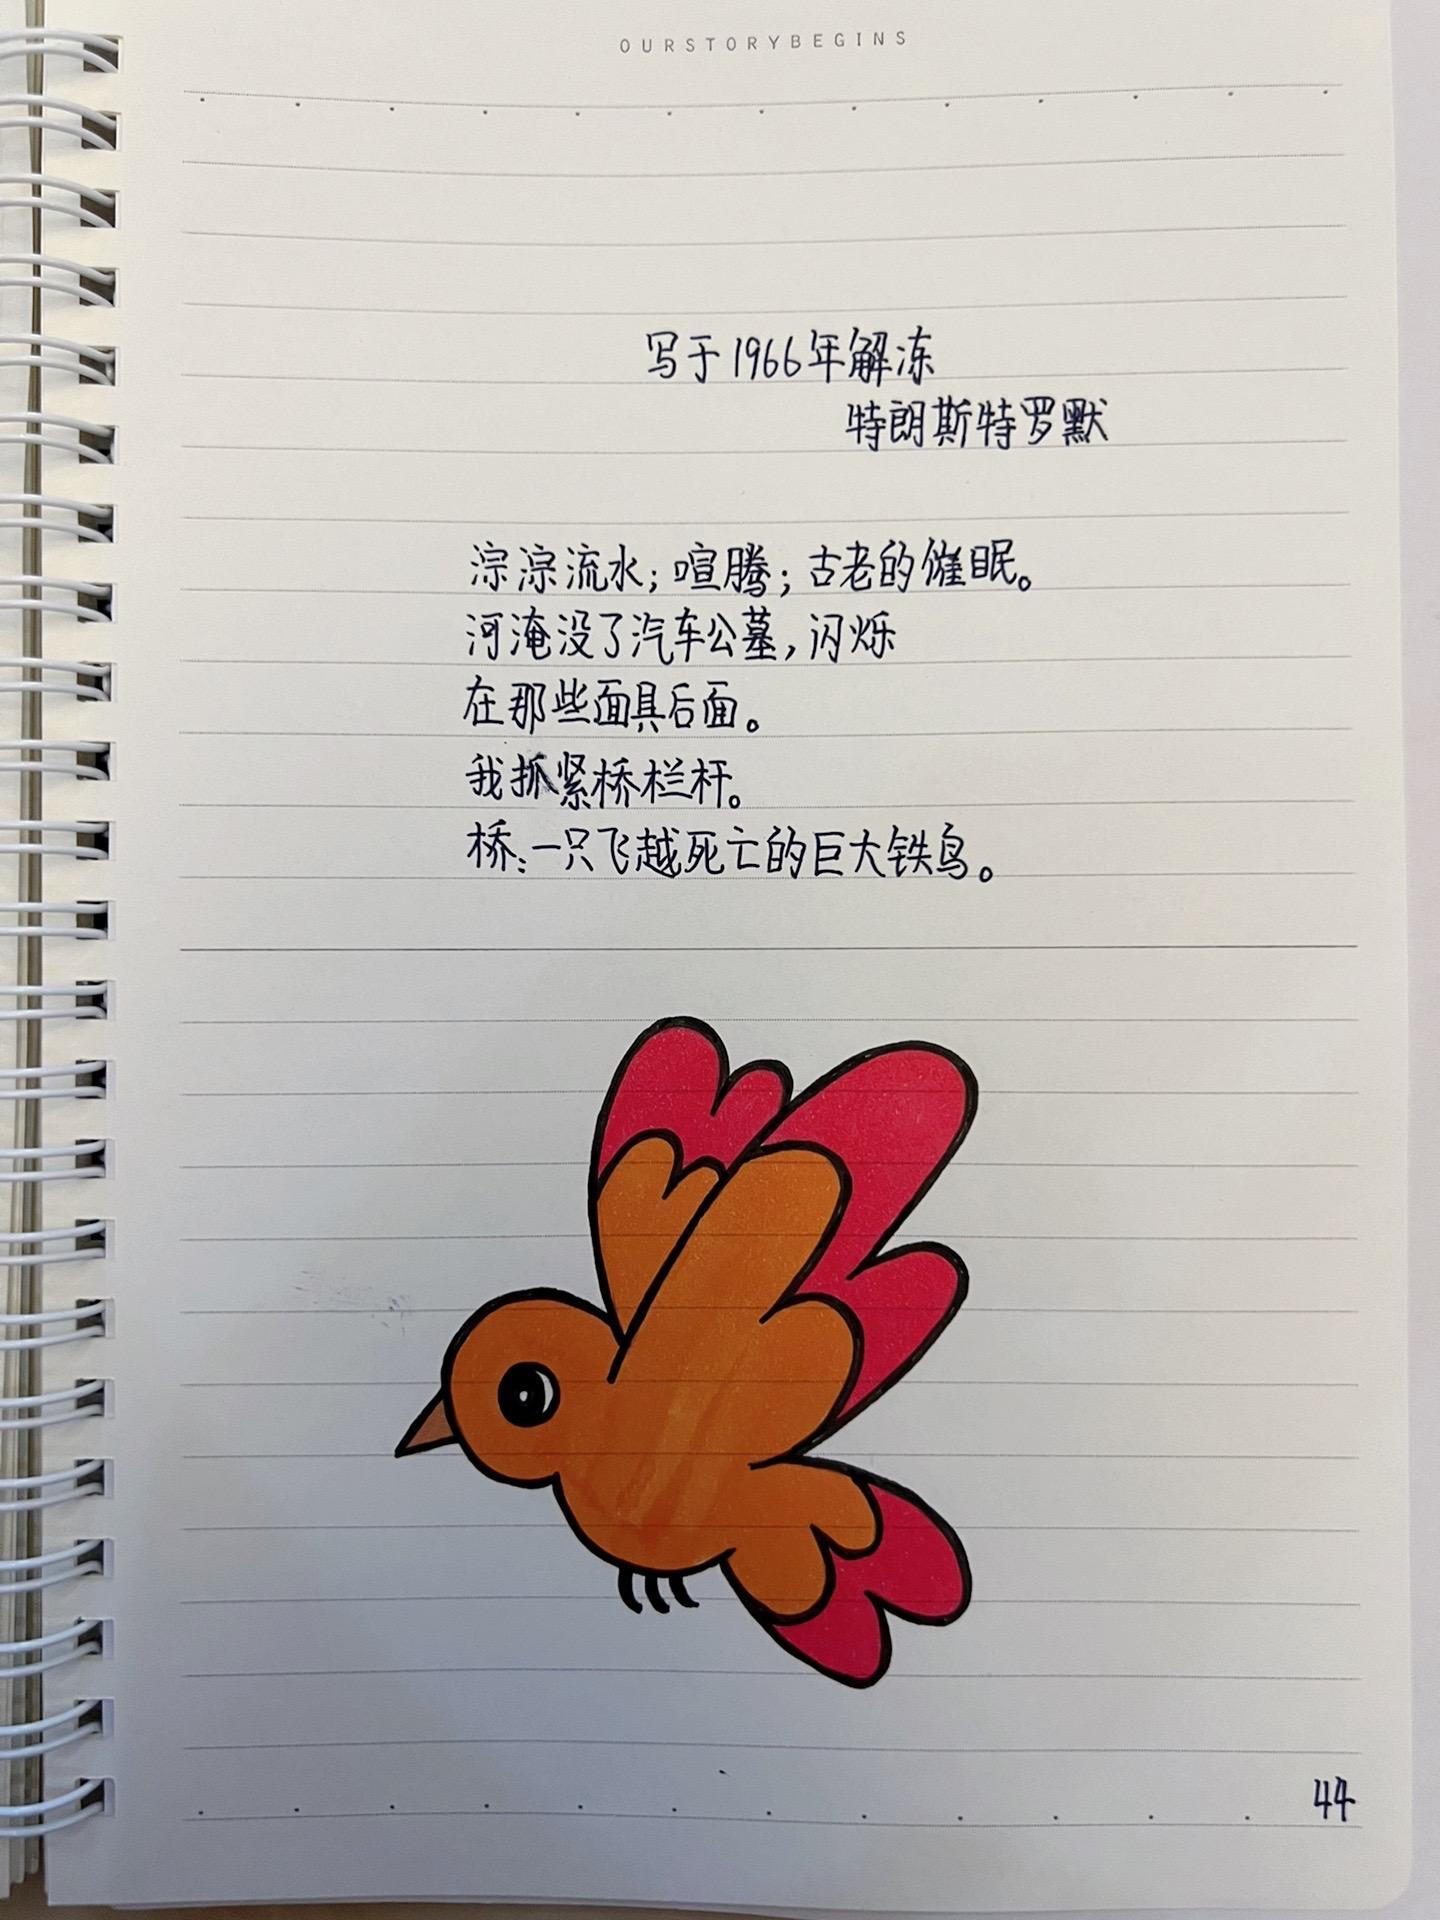 OURSTORYBEGINS
写于1966年解冻
特朗斯特罗默
淙淙流水；喧腾；古老的催眠。
河淹没了汽车公墓，闪烁
在那些面具后面。
我抓紧桥栏杆。
桥：一只飞越死亡的巨大铁鸟。
44